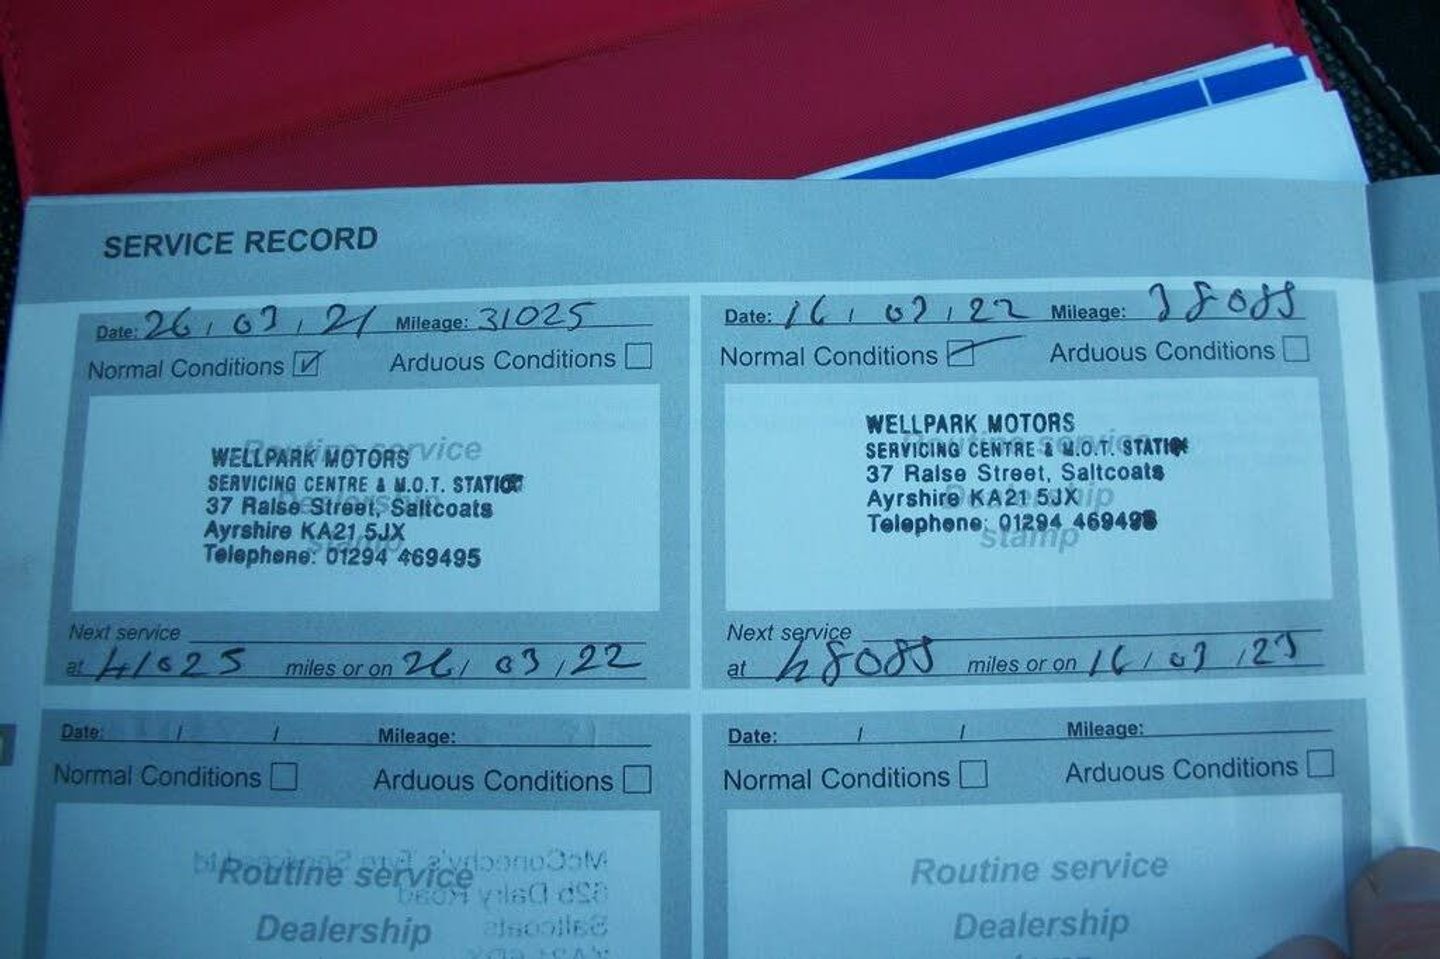 SERVICE RECORD
Date: 26 / 03 / 21 Mileage: 31025
Normal Conditions Arduous Conditions
Routine service
Dealership
stamp
WELLPARK MOTORS
SERVICING CENTRE & M.O.T. STATION
37 Raise Street, Saltcoats
Ayrshire KA21 5JX
Telephone: 01294 469495
Next service
at 41025 miles or on 26 / 03 / 22
Date: 16 / 03 / 22 Mileage: 38088
Normal Conditions Arduous Conditions
Routine service
Dealership
stamp
WELLPARK MOTORS
SERVICING CENTRE & M.O.T. STATION
37 Raise Street, Saltcoats
Ayrshire KA21 5JX
Telephone: 01294 469495
Next service
at 48088 miles or on 16 / 03 / 23
Date: / / Mileage:
Normal Conditions Arduous Conditions
Routine service
Dealership
McConechy's Tyre Services Ltd
62b Dalry Road
Saltcoats
Date: / / Mileage:
Normal Conditions Arduous Conditions
Routine service
Dealership